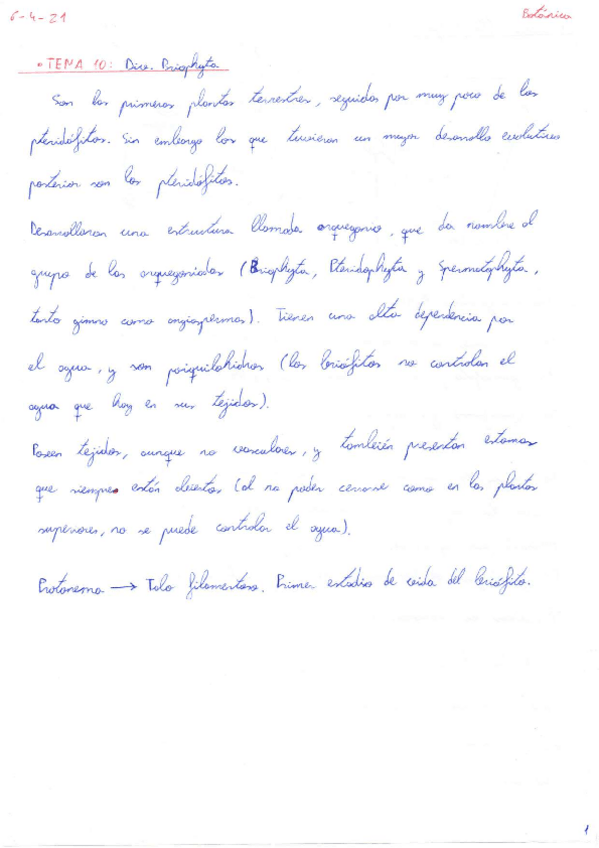 6-4-21
Botánica
• TEMA 10: Div. Briophyta
Son las primeras plantas terrestres, seguidas por muy poco de los
pteridófitos. Sin embargo los que tuvieron un mayor desarrollo evolutivo
posterior son los pteridófitos.
Desarrollaron una estructura llamada arquegonio, que da nombre al
grupo de los arquegoniados (Briophyta, Pteridophyta y Spermatophyta,
tanto gimno como angiospermas). Tienen una alta dependencia por
el agua, y son poiquilohidros (los briófitos no controlan el
agua que hay en sus tejidos).
Poseen tejidos, aunque no vasculares, y también presentan estomas
que siempre están abiertos (al no poder cerrarse como en las plantas
superiores, no se puede controlar el agua).
Protonema → Talo filamentoso. Primer estadio de vida del briófito.
1